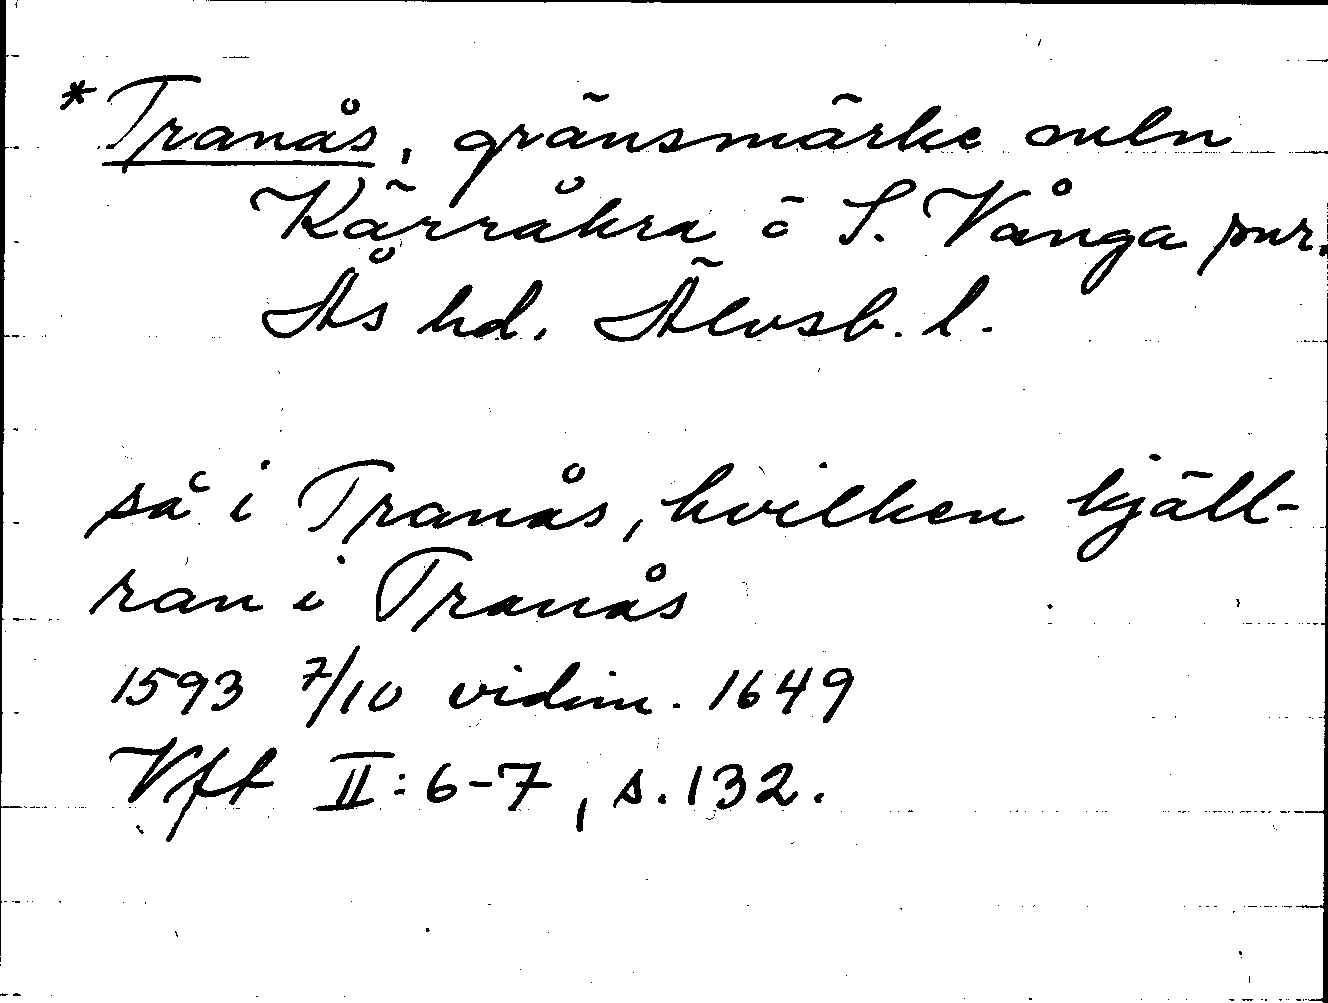 *Tranås, gränsmärke meln
Kärråkra o S. Vånga snr.
Ås hd. Älvsb. l.
så i Tranås, hvilken kjäll-
ran i Tranås
1593 7/10 vidim. 1649
Vft II:6-7, s.132.